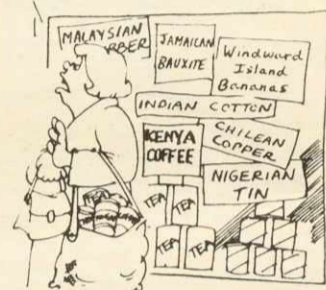 MALAYSIAN
BBER
JAMAICAN
BAUXITE
Windward
Island
Bananas
INDIAN COTTON
KENYA
COFFEE
CHILEAN
COPPER
NIGERIAN
TIN
TEA
TEA
TEA
TEA
TEA